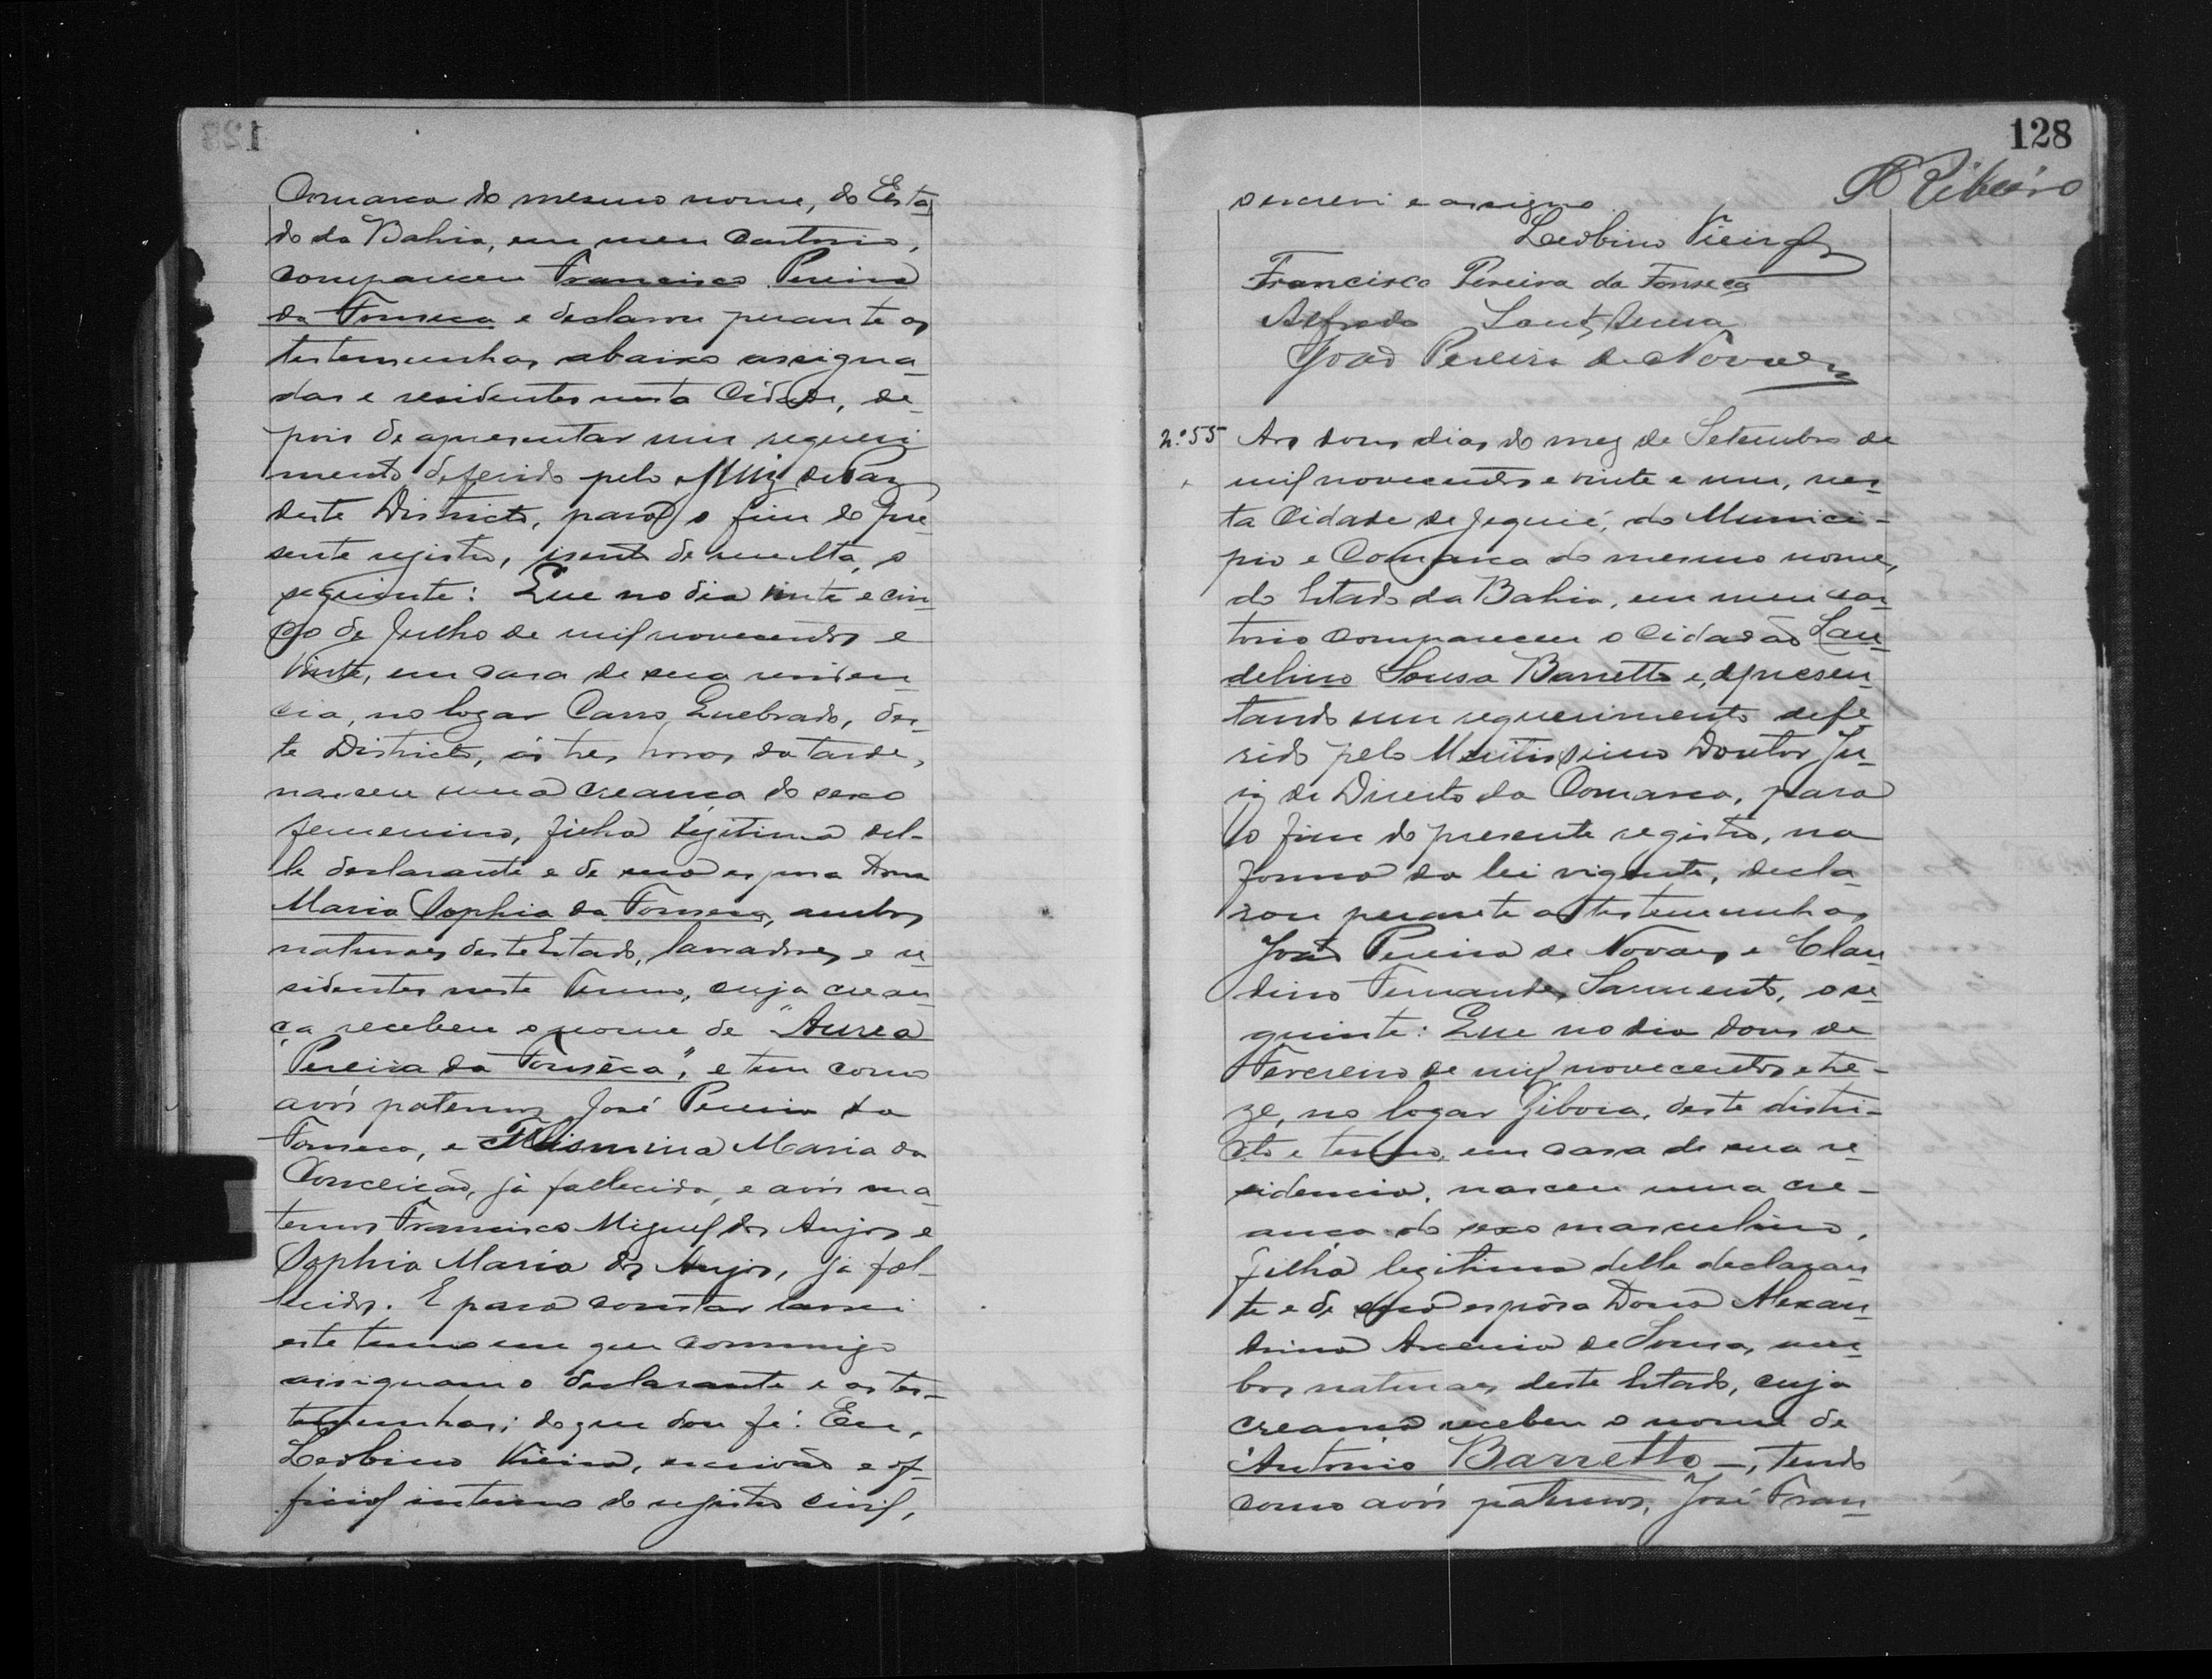 Comarca do mesmo nome, do Esta
do da Bahia, em meu Cartorio,
compareceu Francisco Pereira
da Fonseca e declarou perante as
testemunhas abaixo assigna-
das e residentes nesta Cidade, de-
pois de apresentar um requeri
mento deferido pelo Juiz de Paz
deste Districto, para o fim do pre-
sente registro, isento de multa, o
seguinte: Que no dia vinte e cin-
co de Julho de mil novecentos e
vinte, em casa de sua residen-
cia, no logar Carro Quebrado, des-
te Districto, ás tres horas da tarde,
nasceu uma creança do sexo
femenino, filha legitima del-
le declarante e de sua esposa Dona
Maria Sophia da Fonseca, ambos
naturaes deste Estado, lavradores e re-
sidentes neste Termo, cuja crean-
ça recebeu o nome de "Aurea
Pereira da Fonsêca", e tem como
avós paternos José Pereira da
Fonseca, e Maria da
Conceição, já fallecida, e avós ma
ternos Francisco Miguel dos Anjos e
Sophia Maria dos Anjos, já fal-
lecidos. E para constar lavrei
este termo em que commigo
assignam o declarante e as tes-
temunhas; do que dou fé. Eu,
Leobino Vieira, escrivão e of-
ficial interino do registro civil,
128
Ribeiro
o escrevi e assigno.
Leobino Vieira
Francisco Pereira da Fonseca
Alfredo Sant'Anna
João Pereira de Novaes
N.º 55 Aos dous dias do mez de Setembro de
mil novecentos e vinte e um, nes-
ta Cidade de Jequié, do Munici-
pio e Comarca do mesmo nome,
do Estado da Bahia, em meu car-
torio compareceu o Cidadão Lau-
delino Sousa Barretto e, apresen-
tando um requerimento defe-
rido pelo Meritissimo Doutor Ju-
iz de Direito da Comarca, para
o fim do presente registro, na
forma da lei vigente, decla-
rou perante as testemunhas
João Pereira de Novaes e Clau-
dino Fernandes Sarmento, o se-
guinte: Que no dia dous de
Fevereiro de mil novecentos e tre-
ze, no logar Giboia, deste distri-
cto e termo, em casa de sua re-
sidencia, nasceu uma cre-
ança do sexo masculino,
filho legitimo delle declaran-
te e de sua espôsa Dona Alexan-
drina de Sousa, am-
bos naturaes deste Estado, cuja
creança recebeu o nome de
Antonio Barretto -, tendo
como avós paternos, José Fran-